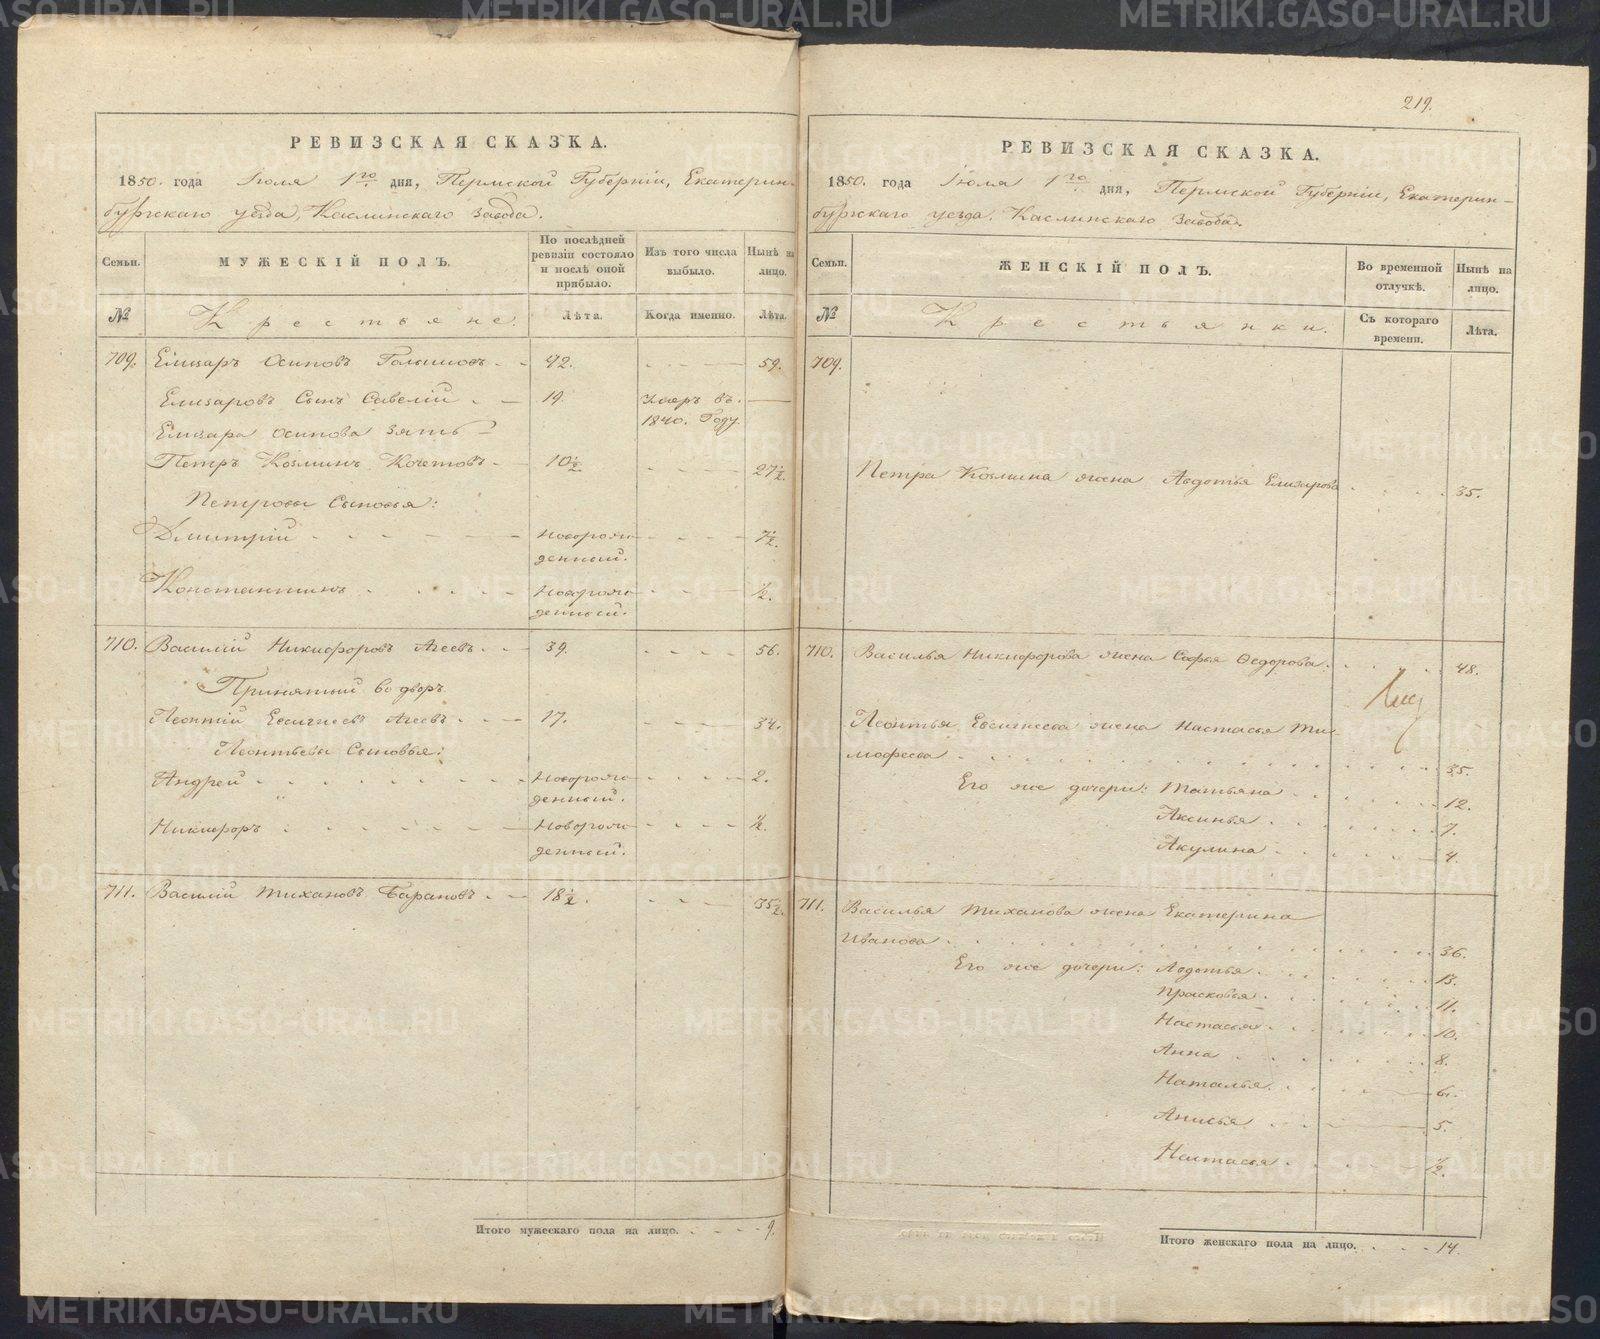 РЕВИЗСКАЯ СКАЗКА.
1850. года Іюля 1го дня, Пермской Губерніи, Екатерин-
бургскаго уезда, Каслинскаго Завода.
Семьи.
МУЖЕСКІЙ ПОЛЪ.
По послѣдней ревизіи состояло и послѣ оной прибыло.
Изъ того числа выбыло.
Нынѣ на лицо.
№
Крестьяне.
Лѣта.
Когда именно.
Лѣта.
709. Елизаръ Осиповъ 42. 59.
Елизаровъ Сынъ Савелій 19. Умеръ въ
1840. Году.
Елизара Осипова зять
Петръ Козминъ Кочетовъ 10½ 27½.
Петровы Сыновья:
Дмитрій Новорож-
денный. 7½.
Константинъ Новорож-
денный. ½.
710. Василій Никифоровъ Агеевъ 39. 56.
Принятый во дворъ
Леонтій Евсигнеевъ Агеевъ 17. 34.
Леонтьевы Сыновья:
Андрей Новорож-
денный. 2.
Никифоръ Новорож-
денный. ½.
711. Василій Тихановъ Барановъ 18½. 35½.
Итого мужескаго пола на лицо. 9.
219.
РЕВИЗСКАЯ СКАЗКА.
1850. года Іюля 1го дня, Пермской Губерніи, Екатерин-
бургскаго уезда, Каслинскаго Завода.
Семьи.
ЖЕНСКІЙ ПОЛЪ.
Во временной отлучкѣ.
Нынѣ на лицо.
№
Крестьянки.
Съ котораго времени.
Лѣта.
709.
Петра Козмина жена Авдотья Елизарова 35.
710. Василья Никифорова жена Софья Федорова. 48.
Леонтья Евсигнеева жена Настасья Ти-
мофеева 35.
Его же дочери: Татьяна 12.
Аксинья 7.
Акулина 4.
711. Василья Тиханова жена Екатерина
Иванова 36.
Его же дочери: Авдотья 13.
Прасковья 11.
Настасья 10.
Анна 8.
Наталья 6.
Анисья 5.
Настасья ½.
Итого женскаго пола на лицо. 14.
METRIKI.GASO-URAL.RU